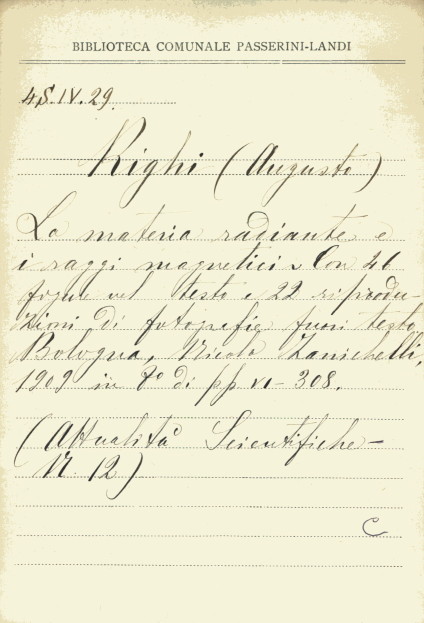 BIBLIOTECA COMUNALE PASSERINI-LANDI
4S.IV.29.
Righi (Augusto)
La materia radiante e
i raggi magnetici. Con 26
figure nel testo e 22 riprodu-
zioni di fotografie fuori testo
Bologna, Nicola Zanichelli,
1909 in 8º di pp VI-308.
(Attualità Scientifiche-
N. 12)
C